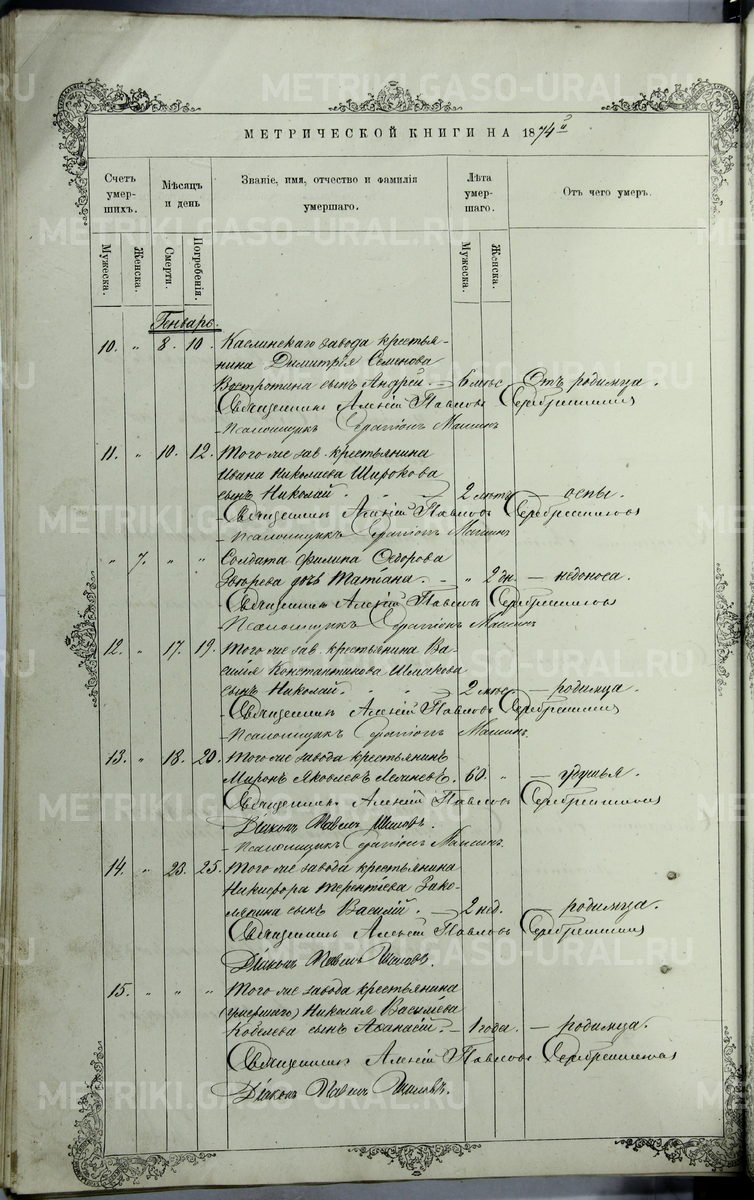 МЕТРИЧЕСКОЙ КНИГИ НА 1874й
Счетъ умершихъ. Мѣсяцъ и день Званіе, имя, отчество и фамилія умершаго. Лѣта умершаго. Отъ чего умеръ.
Мужеска. Женска. Смерти. Погребенія. Мужеска. Женска.
Генварь.
10. " 8. 10. Каслинскаго завода крестья-
нина Димитрія Семенова
Востротина сынъ Андрей. — 6 мѣс. Отъ родимца.
Священникъ Алексій Павловъ Серебренниковъ
Псаломщикъ Мамин
11. " 10. 12. Того же зав. крестьянина
Ивана Николаева Широкова
сынъ Николай. 2 лѣтъ — оспы.
Священникъ Алексій Павловъ Серебренниковъ
Псаломщикъ Мамин
" 7. " " Солдата Филипа Ѳедорова
дочь Татіана. — " 2 дн. — недоноса.
Священникъ Алексій Павловъ Серебренниковъ
Псаломщикъ Мамин
12. " 17. 19. Того же зав. крестьянина Ва-
силія Константинова
сынъ Николай. 2 мѣс. — родимца.
Священникъ Алексій Павловъ Серебренниковъ
Псаломщикъ Мамин
13. " 18. 20. Того же завода крестьянинъ
Миронъ Яковлевъ 60. "
Священникъ Алексій Павловъ Серебренниковъ
Діаконъ Павелъ
Псаломщикъ Мамин
14. " 23. 25. Того же завода крестьянина
Никифора Терентіева Зако-
сынъ Василій. — 2 нед. — родимца.
Священникъ Алексій Павловъ Серебренниковъ
Діаконъ Павелъ
15. " " " Того же завода крестьянина
(умершаго) Николая Василіева
Кобелева сынъ Аѳанасій. — 1 года. — родимца.
Священникъ Алексій Павловъ Серебренниковъ
Діаконъ Павелъ
METRIKI.GASO-URAL.RU